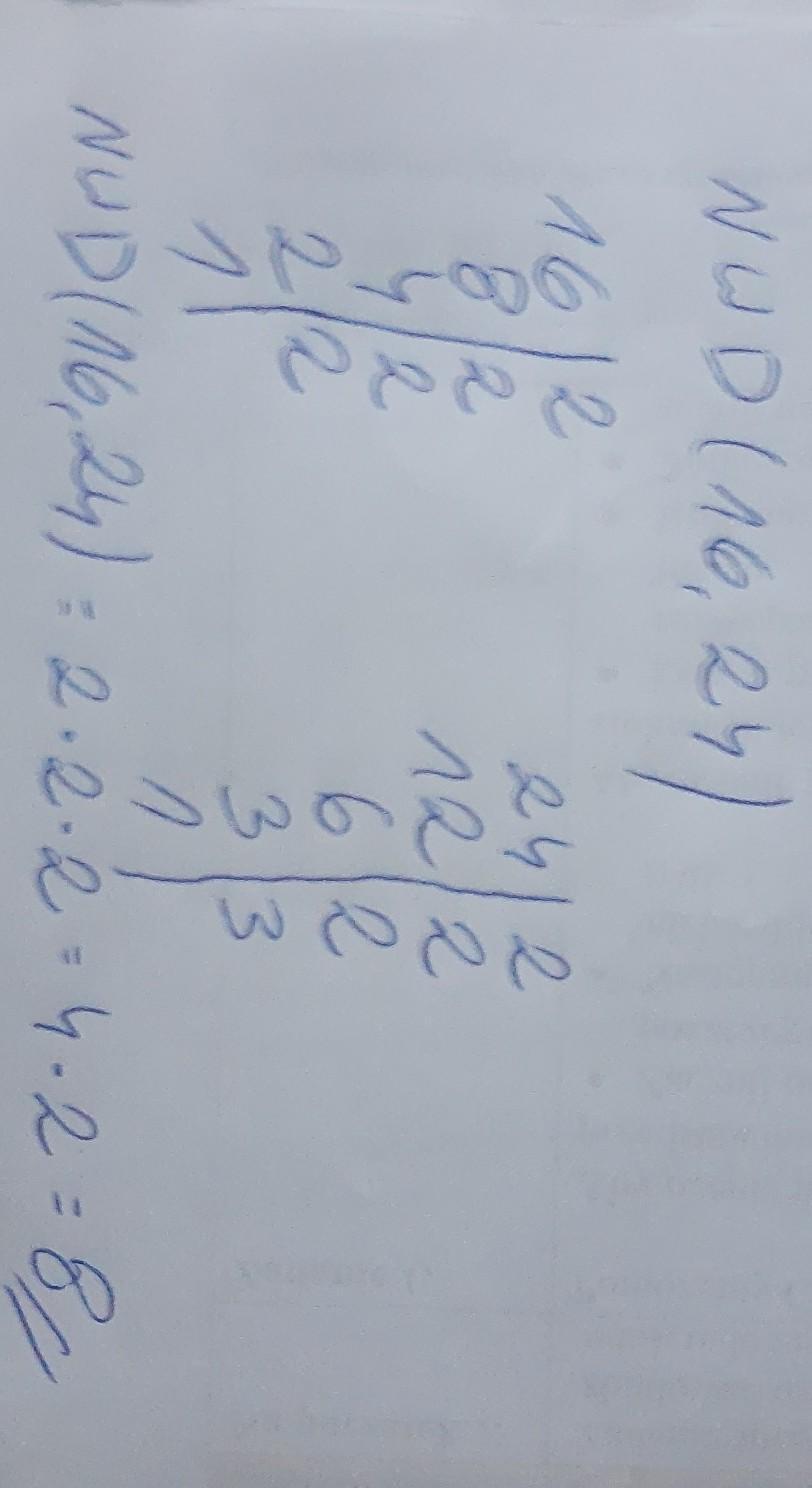 NWD(16,24)
16|2 24|2
8|2 12|2
4|2 6|2
2|2 3|3
1| 1|
NWD(16,24) = 2·2·2 = 4·2 = 8